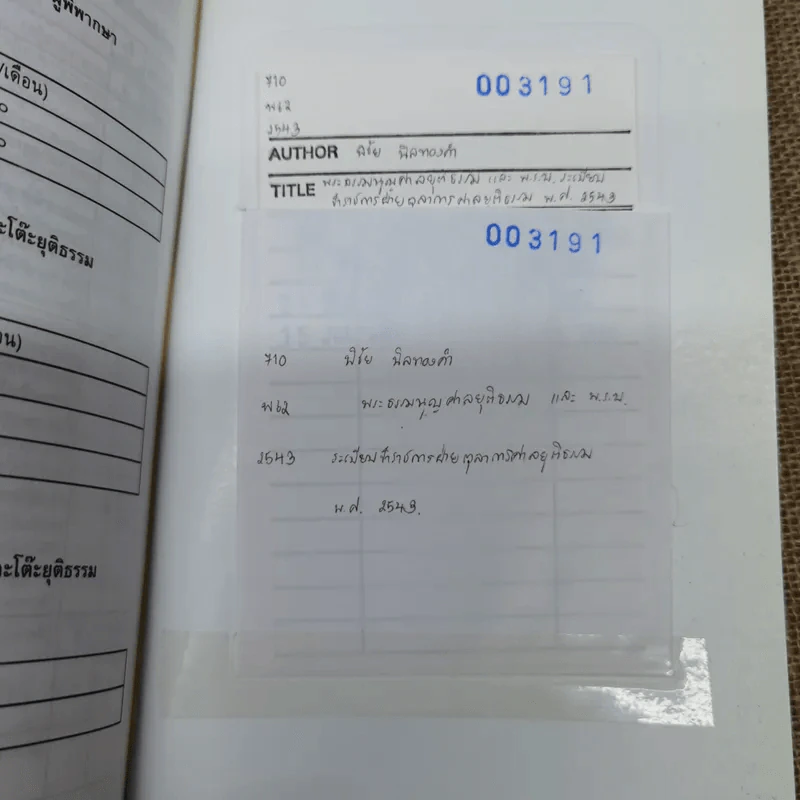 ผู้พิพากษา
/เดือน)
ะโต๊ะยุติธรรม
อน)
ะโต๊ะยุติธรรม
710 003191
พ62
2543
AUTHOR พิชัย นิลทองคำ
TITLE พระธรรมนูญศาลยุติธรรม และ พ.ร.บ. ระเบียบ
ข้าราชการฝ่ายตุลาการศาลยุติธรรม พ.ศ. 2543
003191
710 พิชัย นิลทองคำ
พ62 พระธรรมนูญศาลยุติธรรม และ พ.ร.บ.
2543 ระเบียบข้าราชการฝ่ายตุลาการศาลยุติธรรม
พ.ศ. 2543.